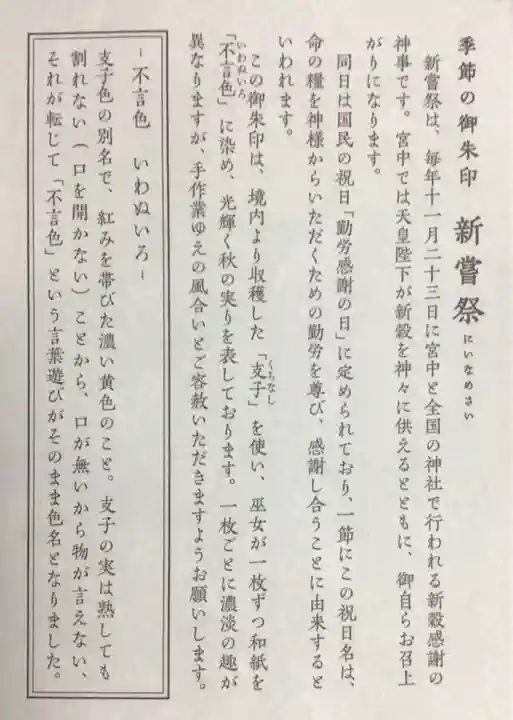 季節の御朱印　新嘗祭 にいなめさい
新嘗祭は、毎年十一月二十三日に宮中と全国の神社で行われる新穀感謝の
神事です。宮中では天皇陛下が新穀を神々に供えるとともに、御自らお召上
がりになります。
同日は国民の祝日「勤労感謝の日」に定められており、一節にこの祝日名は、
命の糧を神様からいただくための勤労を尊び、感謝し合うことに由来すると
いわれます。
この御朱印は、境内より収穫した「支子」を使い、巫女が一枚ずつ和紙を
くちなし
「不言色」に染め、光輝く秋の実りを表しております。一枚ごとに濃淡の趣が
いわぬいろ
異なりますが、手作業ゆえの風合いとご容赦いただきますようお願いします。
－不言色　いわぬいろ－
支子色の別名で、紅みを帯びた濃い黄色のこと。支子の実は熟しても
割れない（口を開かない）ことから、口が無いから物が言えない、
それが転じて「不言色」という言葉遊びがそのまま色名となりました。